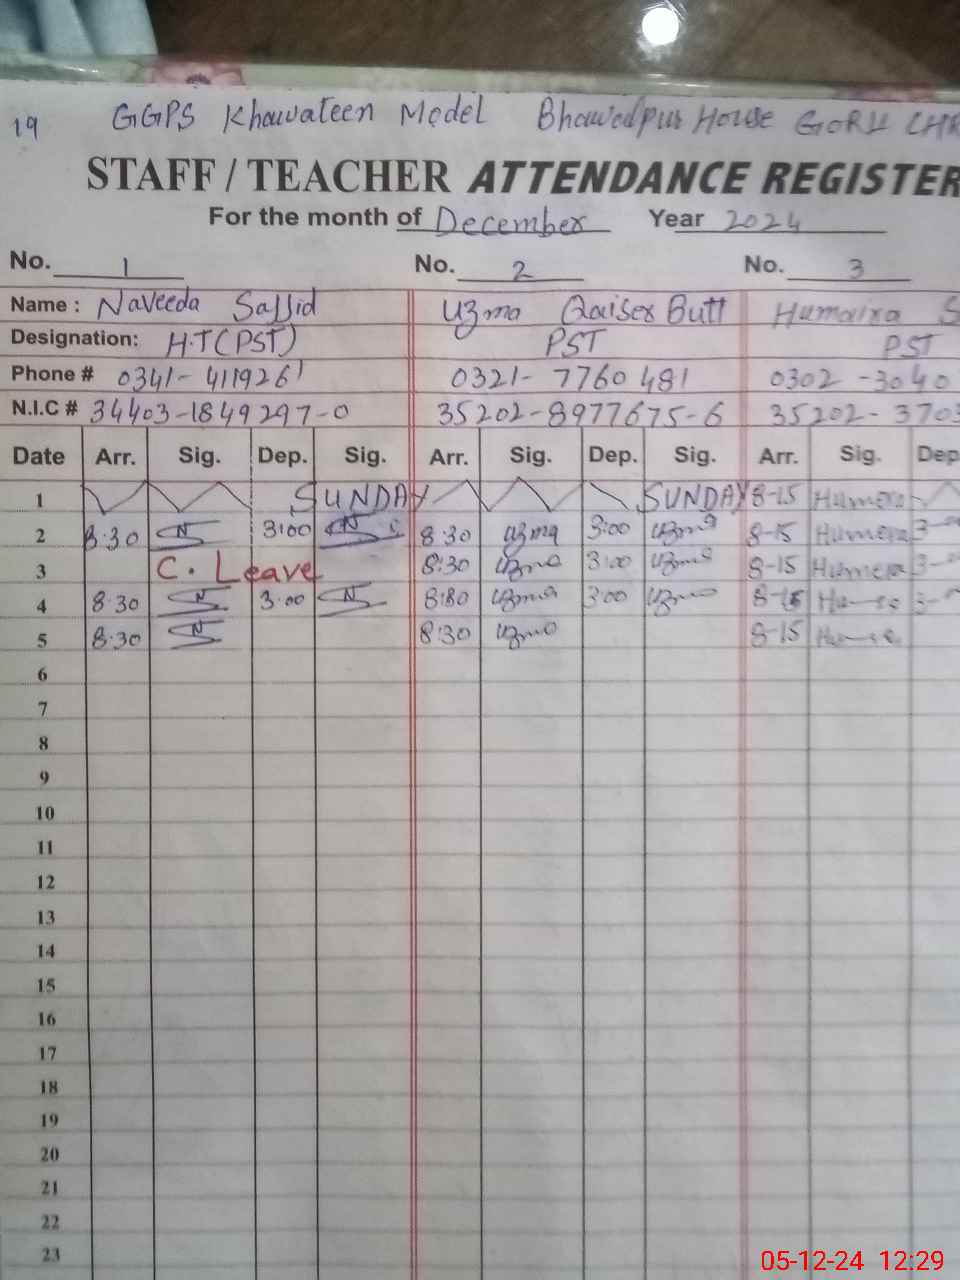 19 GGPS Khawateen Model Bhawalpur House GORII LHR
STAFF / TEACHER ATTENDANCE REGISTER
For the month of December Year 2024
No. 1 No. 2 No. 3
Name : Naveeda Sajjid Uzma Qaiser Butt Humaira S
Designation: H.T(PST) PST PST
Phone # 0341-4119261 0321-7760481 0302-3040
N.I.C # 34403-1849297-0 35202-8977675-6 35202-3703
Date Arr. Sig. Dep. Sig. Arr. Sig. Dep. Sig. Arr. Sig. Dep
1 SUNDAY SUNDAY 8-15 Humera
2 8:30 3:00 8:30 uzma 3:00 uzma 8-15 Humera 3-
3 C. Leave 8:30 uzma 3:00 uzma 8-15 Humera 3-
4 8:30 3:00 8:30 uzma 3:00 uzma 8-15 3-
5 8:30 8:30 uzma 8-15
6
7
8
9
10
11
12
13
14
15
16
17
18
19
20
21
22
23
05-12-24 12:29